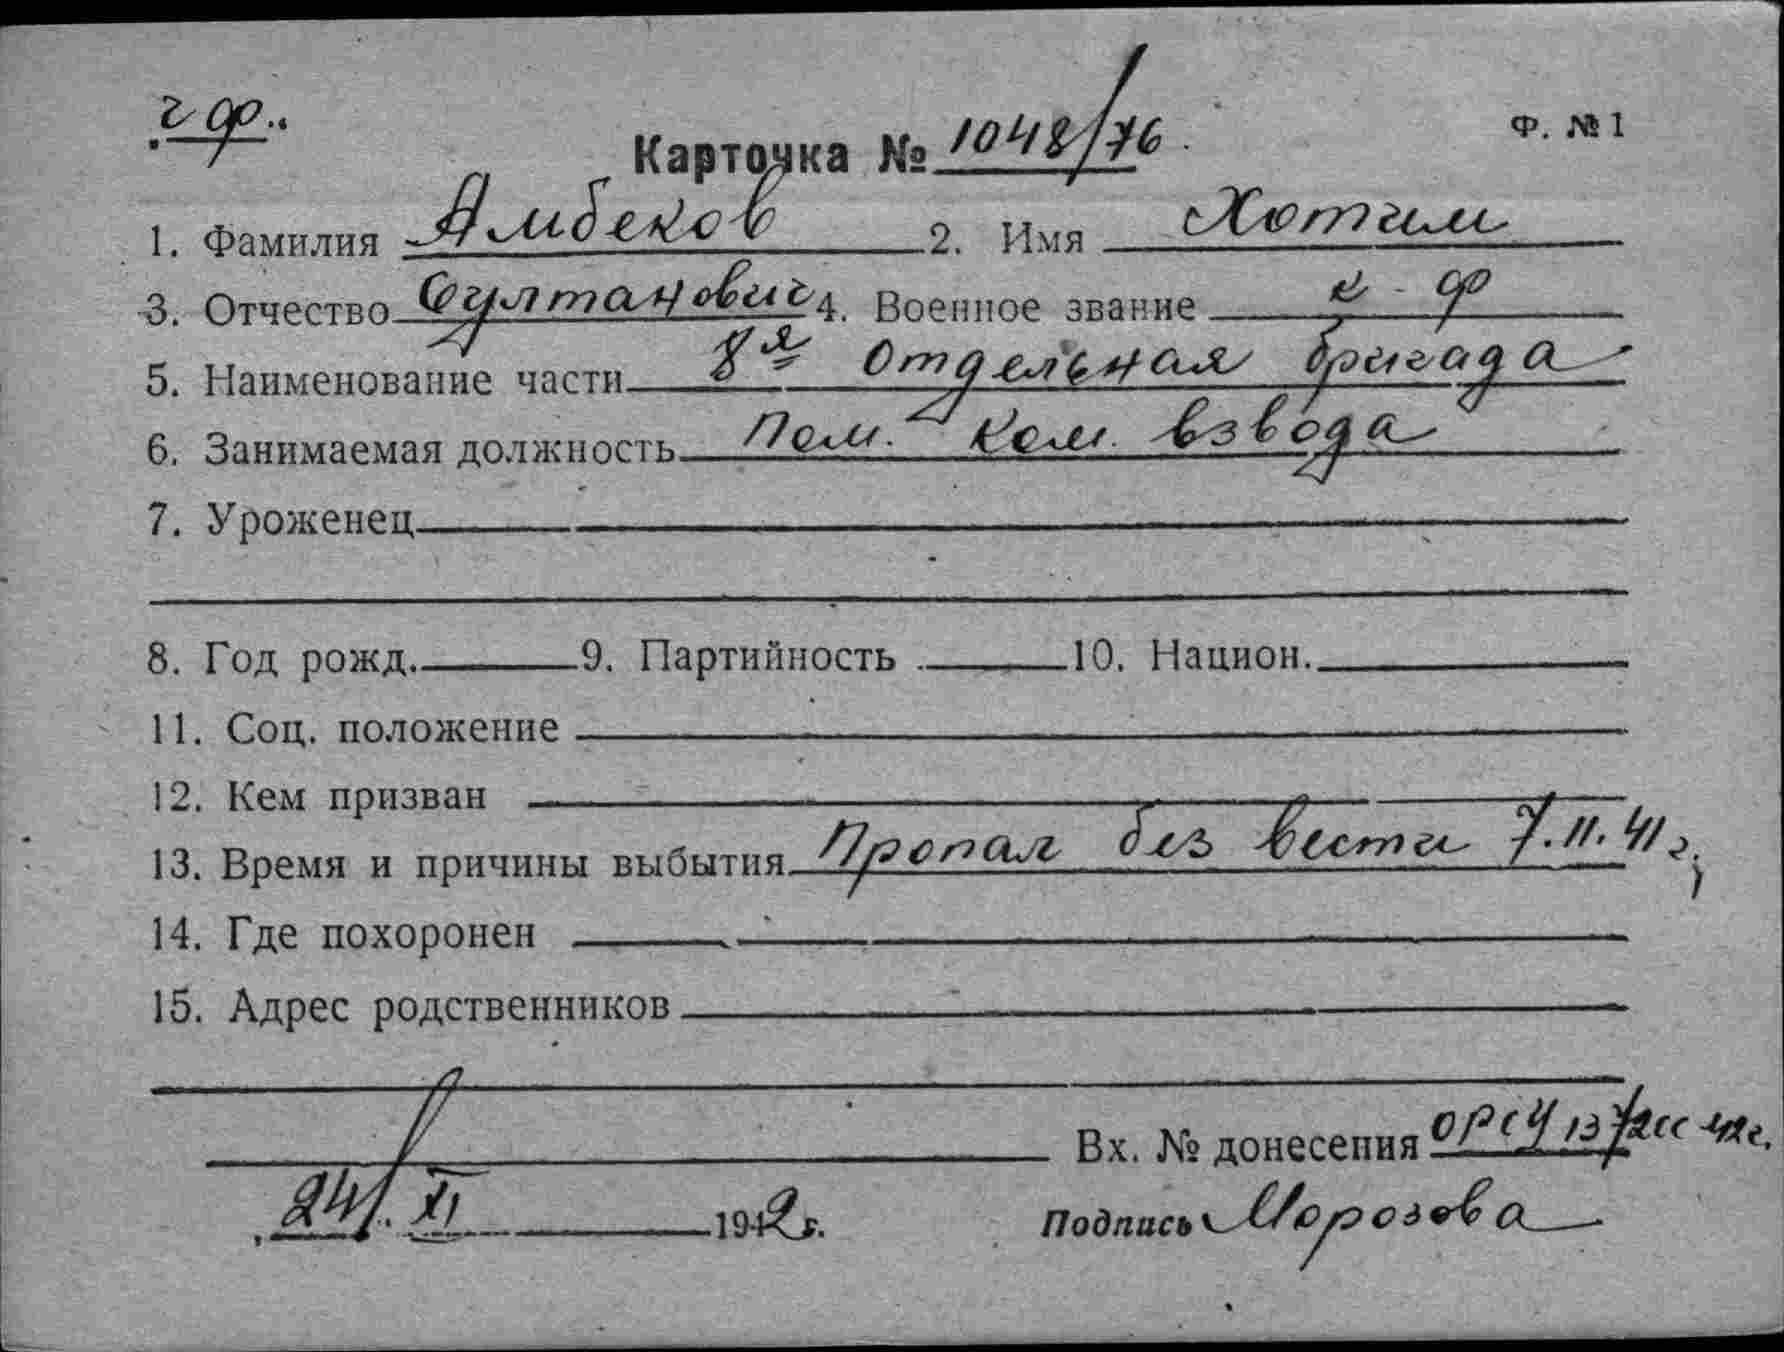 г ф..
Ф. № 1
Карточка № 1048/76
1. Фамилия Амбеков 2. Имя Хотим
3. Отчество Султанович 4. Военное звание к-ф
5. Наименование части 8я отдельная бригада
6. Занимаемая должность Пом. Ком. взвода
7. Уроженец
8. Год рожд. 9. Партийность 10. Национ.
11. Соц. положение
12. Кем призван
13. Время и причины выбытия Пропал без вести 7.11.41 г.
14. Где похоронен
15. Адрес родственников
Вх. № донесения 42г.
24/. XI 1942г.
Подпись Морозова